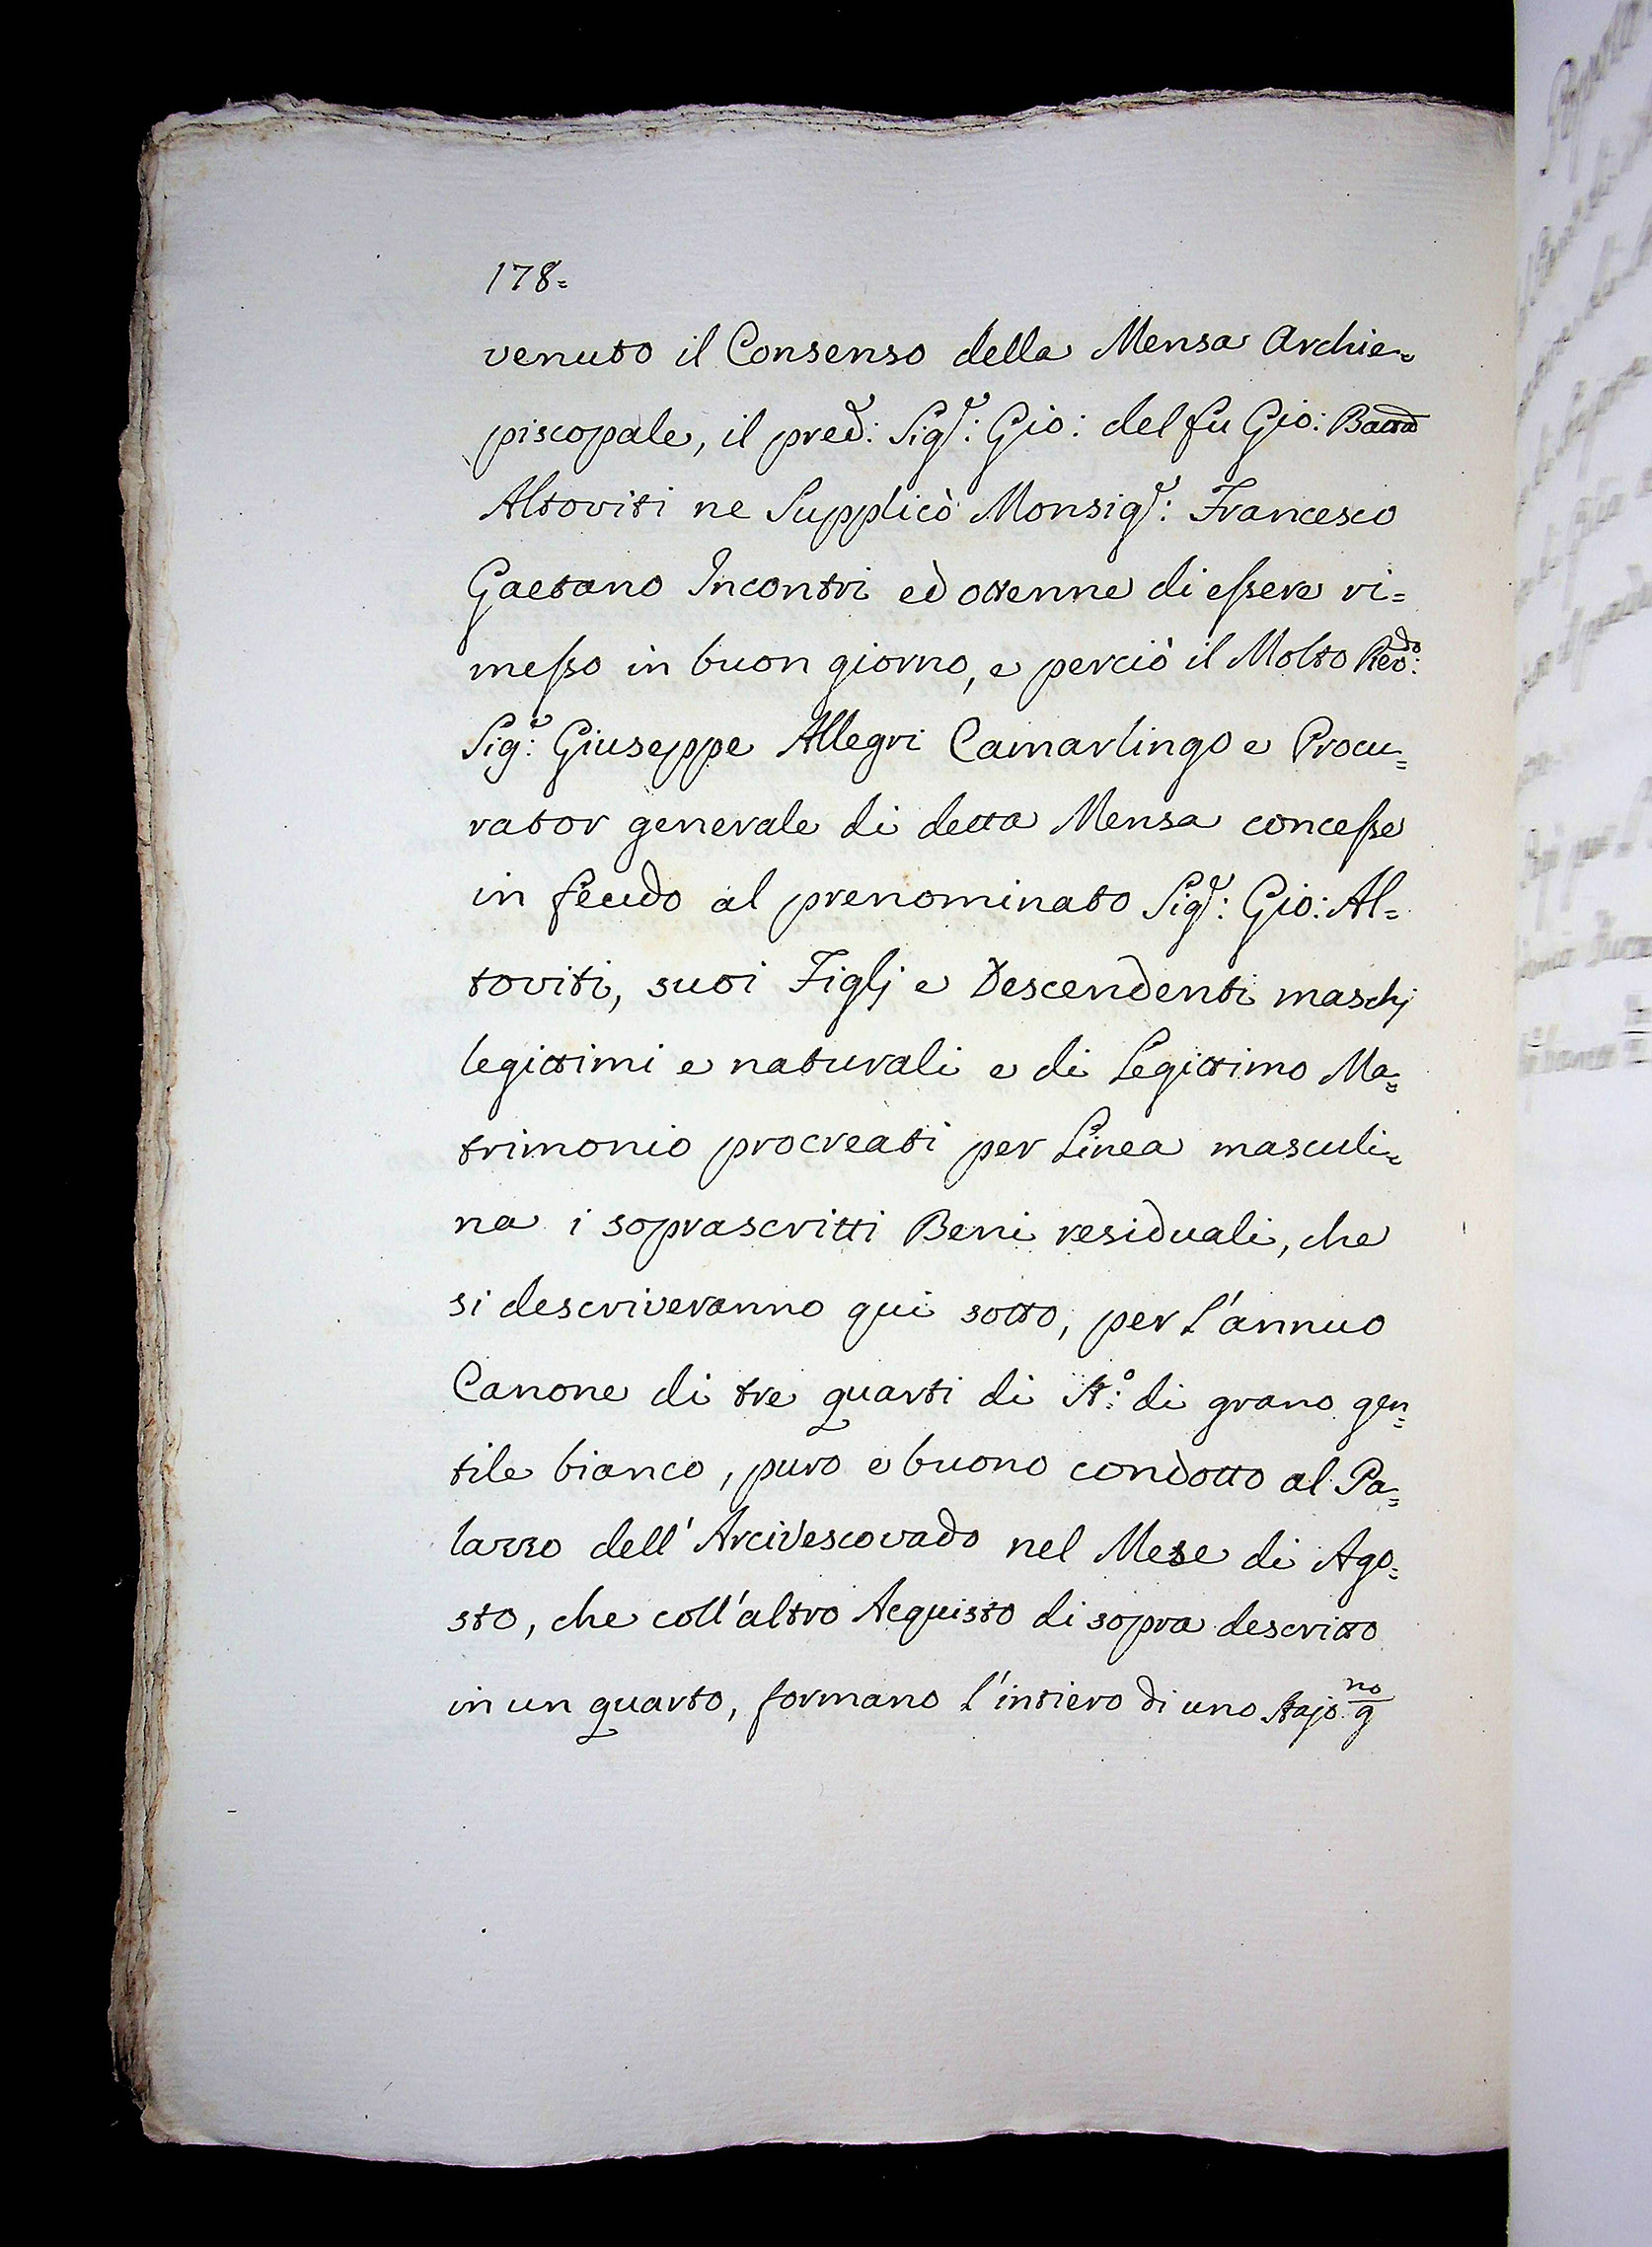 178=
venuto il Consenso della Mensa Archie=
piscopale, il pred: Sig.r: Gio: del fu Gio: Batta
Altoviti ne Supplicò Monsig.r: Francesco
Gaetano Incontri ed ottenne di essere ri=
messo in buon giorno, e perciò il Molto Rev:do
Sig.r: Giuseppe Allegri Camarlingo e Procu=
rator generale di detta Mensa concesse
in feudo al prenominato Sig.r: Gio: Al=
toviti, suoi Figlj e Descendenti maschj
legittimi e naturali e di Legittimo Ma=
trimonio procreati per Linea masculi=
na i soprascritti Beni residuali, che
si descriveranno qui sotto, per l'annuo
Canone di tre quarti di St:o di grano gen=
tile bianco, puro e buono condotto al Pa=
lazzo dell'Arcivescovado nel Mese di Ago=
sto, che coll'altro Acquisto di sopra descritto
in un quarto, formano l'intiero di uno Stajo g.no